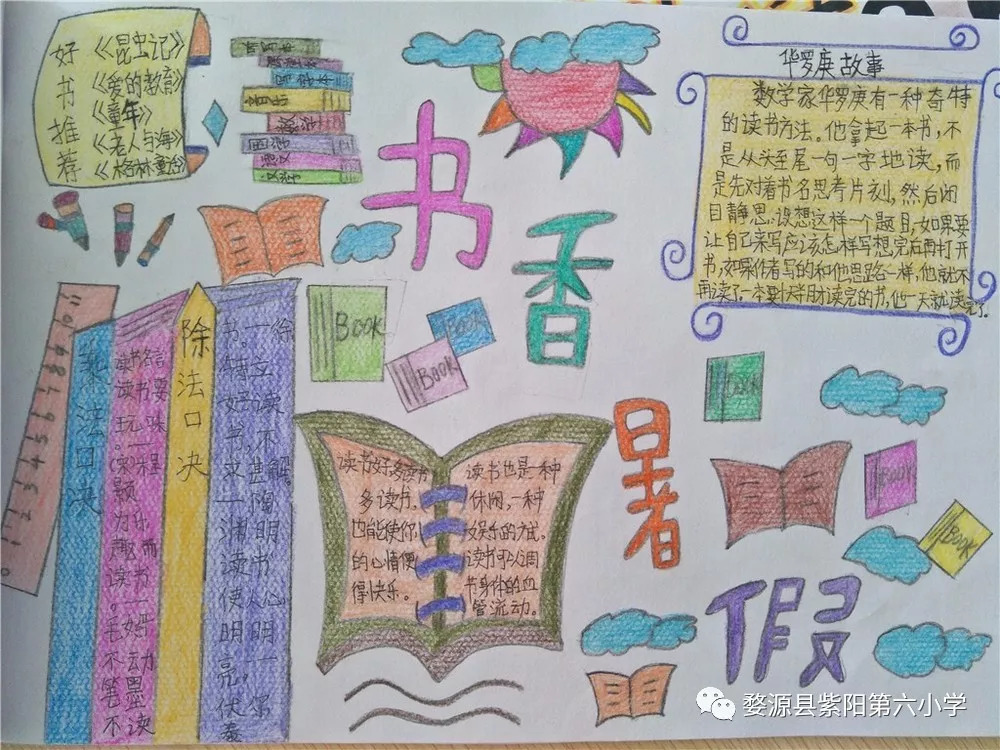 好书推荐
《昆虫记》
《爱的教育》
《童年》
《老人与海》
《格林童话》
书香暑假
华罗庚故事
数学家华罗庚有一种奇特
的读书方法。他拿起一本书,不
是从头至尾一句一字地读,而
是先对着书名思考片刻,然后闭
目静思.设想这样一个题目,如果要
让自己来写应该怎样写想完后再打开
书,如果作者写的和他思路一样,他就不
再读了.一本要大半月才读完的书,他一天就读完了.
1 2 3 4 5 6 7 8 9 10 11
乘法口决
读书
读书要
玩味
程
题
为乐
趣而
读书
。一
毛姆
不动
笔墨
不读
除法口决
书。一徐
特立
读不
好书,
甚解
文一陶
渊明
读书
使人心
明一
亮,
伏
BOOK
BOOK
BOOK
读书好多读书
多读书,
也能使你
的心情便
得快乐。
读书也是一种
休闲,一种
娱乐的方式.
读书可以调
节身体的血
管流动。
BOOK
BOOK
BOOK
婺源县紫阳第六小学